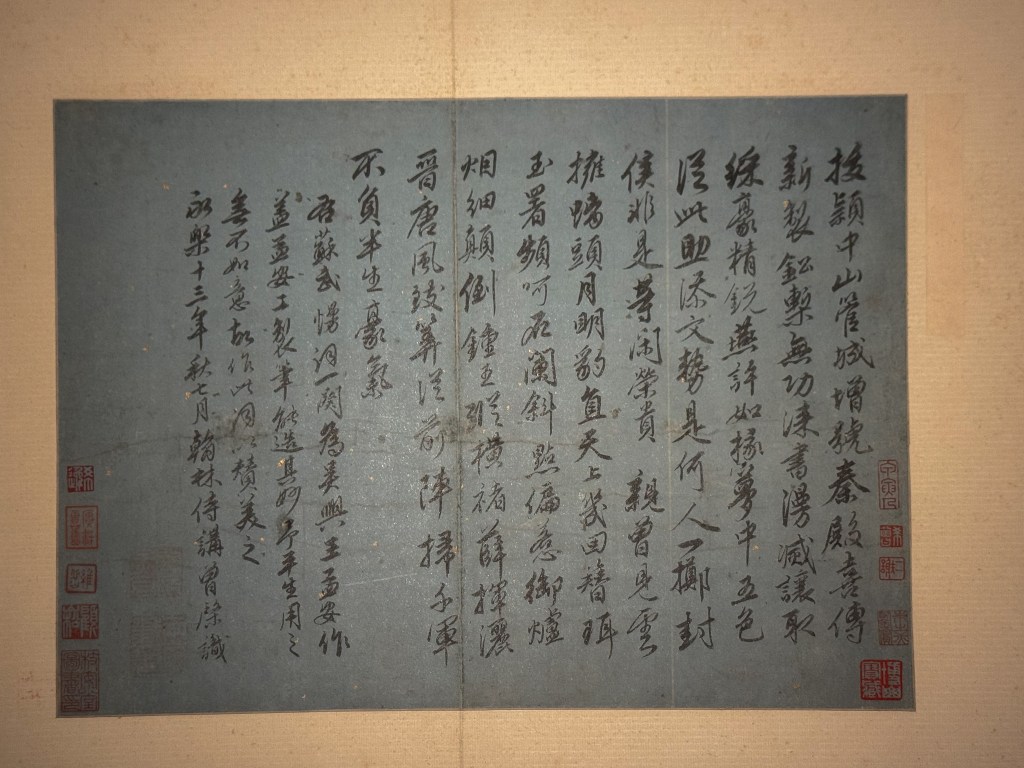 拔穎中山管城增號秦殿喜傳
新製鉛槧無功漆書漫滅讓取
綵豪精銳燕許如椽夢中五色
從此助添文勢是何人一擲封
侯非是等閑榮貴 親曾見雲
擁螭頭月明豹直天上幾回簪珥
玉署頻呵石闌斜點偏惹御爐
烟細顛倒鍾王縱橫褚薛揮灑
晉唐風致筭從前陣掃千軍
不負半生豪氣
右蘇武慢詞一闋為吳興王孟安作
蓋孟安工製筆能造其妙予平生用之
無不如意故作此詞以贊美之
永樂十三年秋七月翰林侍講曾棨識